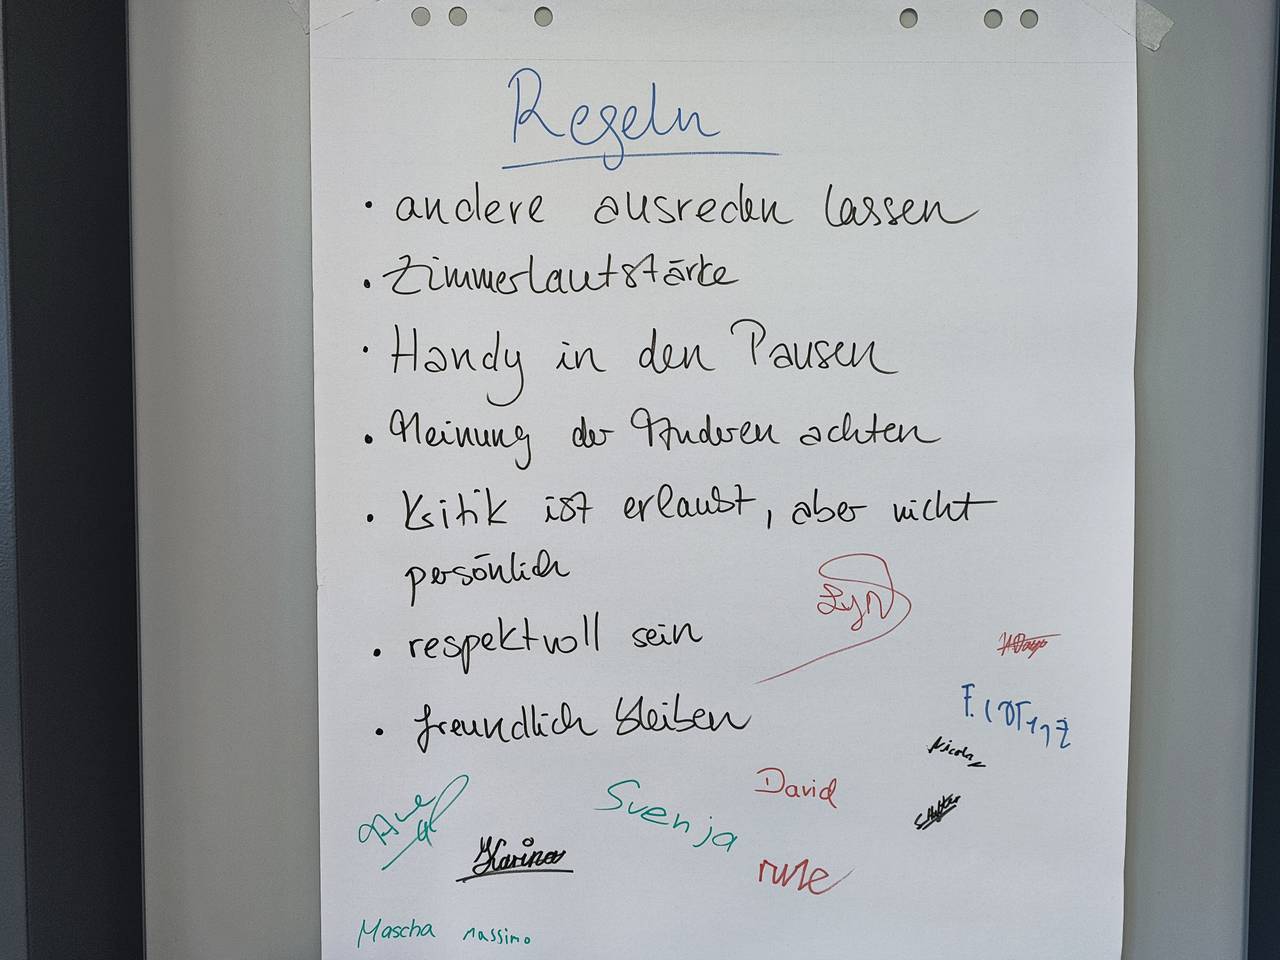 Regeln
• andere ausreden lassen
• Zimmerlautstärke
• Handy in den Pausen
• Meinung der Anderen achten
• Kritik ist erlaubt, aber nicht
persönlich
• respektvoll sein
• freundlich bleiben
Nicola
David
Svenja
Karina
Mascha Massimo